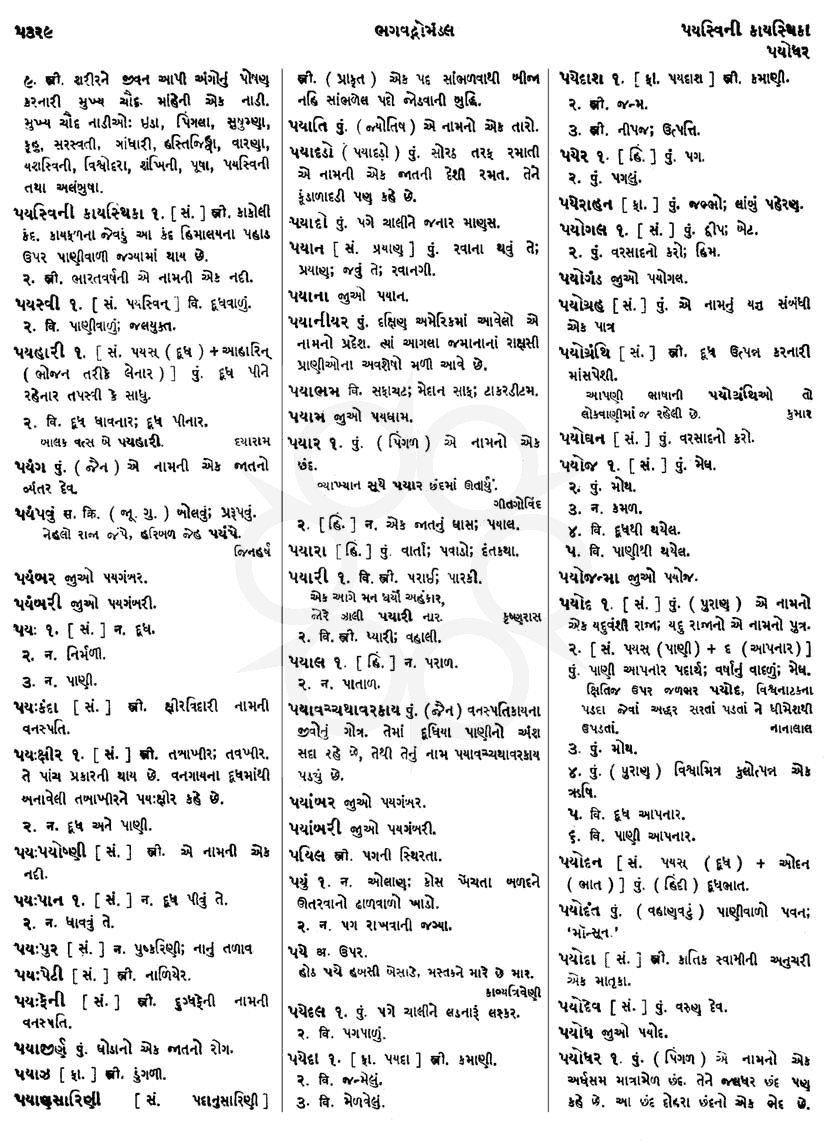 ૫૩૨૯
ભગવદ્ગોમંડલ
પયસ્વિની કાયસ્થિકા
પયોધર
૯. સ્ત્રી. શરીરને જીવન આપી અંગોનું પોષણ
કરનારી મુખ્ય ચૌદ માંહેની એક નાડી.
મુખ્ય ચૌદ નાડીઓ: ઇડા, પિંગલા, સુષુમ્ણા,
કૂહુ, સરસ્વતી, ગાંધારી, હસ્તિજિહ્વા, વારણા,
યશસ્વિની, વિશ્વોદરા, શંખિની, પૂષા, પયસ્વિની
તથા અલંબુષા.
પયસ્વિની કાયસ્થિકા ૧. [ સં. ] સ્ત્રી. કાકોલી
કંદ. કાયફળના જેવડું આ કંદ હિમાલયના પહાડ
ઉપર પાણીવાળી જગ્યામાં થાય છે.
૨. સ્ત્રી. ભારતવર્ષની એ નામની એક નદી.
પયસ્વી ૧. [ સં. પયસ્વિન્ ] વિ. દૂધવાળું.
૨. વિ. પાણીવાળું; જલયુક્ત.
પયહારી ૧. [ સં. પયસ્ ( દૂધ ) + આહારિન્
( ભોજન તરીકે લેનાર ) ] પું. દૂધ પીને
રહેનાર તપસ્વી કે સાધુ.
૨. વિ. દૂધ ધાવનાર; દૂધ પીનાર.
બાલક વત્સ બે પયહારી. દયારામ
પયંગ પું. ( જૈન ) એ નામની એક જાતનો
વ્યંતર દેવ.
પયંપવું સ. ક્રિ. ( જૂ. ગુ. ) બોલવું; પ્રરૂપવું.
નેહલો રાજા જંપે, હરિબળ જેહ પયંપે.
જિનહર્ષ
પયંબર જુઓ પયગંબર.
પયંબરી જુઓ પયગંબરી.
પયઃ ૧. [ સં. ] ન. દૂધ.
૨. ન. નિર્મળી.
૩. ન. પાણી.
પયઃકંદા [ સં. ] સ્ત્રી. ક્ષીરવિદારી નામની
વનસ્પતિ.
પયઃક્ષીર ૧. [ સં. ] સ્ત્રી. તબાખીર; તવખીર.
તે પાંચ પ્રકારની થાય છે. વનગાયના દૂધમાંથી
બનાવેલી તબાખીરને પયઃક્ષીર કહે છે.
૨. ન. દૂધ અને પાણી.
પયઃપયોષ્ણી [ સં. ] સ્ત્રી. એ નામની એક
નદી.
પયઃપાન ૧. [ સં. ] ન. દૂધ પીવું તે.
૨. ન. ધાવવું તે.
પયઃપુર [ સં. ] ન. પુષ્કરિણી; નાનું તળાવ
પયઃપેટી [ સં. ] સ્ત્રી. નાળિયેર.
પયઃફેની [ સં. ] સ્ત્રી. દુગ્ધફેની નામની
વનસ્પતિ.
પયાજીર્ણ પું. ઘોડાનો એક જાતનો રોગ.
પયાઝ [ ફા. ] સ્ત્રી. ડુંગળી.
પયાણુસારિણી [ સં. પદાનુસારિની ]
સ્ત્રી. ( પ્રાકૃત ) એક પદ સાંભળવાથી બીજા
નહિ સાંભળેલ પદો જોડવાની બુદ્ધિ.
પયાતિ પું. ( જ્યોતિષ ) એ નામનો એક તારો.
પયાદડો ( પયાદડ઼ો ) પું. સોરઠ તરફ રમાતી
એ નામની એક જાતની દેશી રમત. તેને
કૂંડાળાદડી પણ કહે છે.
પયાદો પું. પગે ચાલીને જનાર માણસ.
પયાન [ સં. પ્રયાણ ] પું. રવાના થવું તે;
પ્રયાણ; જવું તે; રવાનગી.
પયાના જુઓ પયાન.
પયાનીયર પું. દક્ષિણ અમેરિકામાં આવેલો એ
નામનો પ્રદેશ. ત્યાં આગલા જમાનાનાં રાક્ષસી
પ્રાણીઓના અવશેષો મળી આવે છે.
પયાભમ વિ. સફાચટ; મેદાન સાફ; ટાકરડીટમ.
પયામ જુઓ પયધામ.
પયાર ૧. પું. ( પિંગળ ) એ નામનો એક
છંદ.
વ્યાખ્યાન સૂચે પયાર છંદમાં ઊતાર્યું.
ગીતગોવિંદ
૨. [ હિં. ] ન. એક જાતનું ઘાસ; પયાલ.
પયારા [ હિં. ] પું. વાર્તા; પવાડો; દંતકથા.
પયારી ૧. વિ. સ્ત્રી. પરાઈ; પારકી.
એક આગે મન ધર્યો અહંકાર,
જોરે ઝાલી પયારી નાર. કૃષ્ણરાસ
૨. વિ. સ્ત્રી. પ્યારી; વહાલી.
પયાલ ૧. [ હિં. ] ન. પરાળ.
૨. ન. પાતાળ.
પયાવચ્ચથાવરકાય પું. (જૈન) વનસ્પતિકાયના
જીવોનું ગોત્ર. તેમાં દૂધિયા પાણીનો અંશ
સદા રહે છે, તેથી તેનું નામ પયાવચ્ચથાવરકાય
પડયું છે.
પયાંબર જુઓ પયગંબર.
પયાંબરી જુઓ પયગંબરી.
પયિલ સ્ત્રી. પગની સ્થિરતા.
પયું ૧. ન. ઓલાણ; કોસ ખેંચતા બળદને
ઊતરવાનો ઢાળવાળો ખાડો.
૨. ન. પગ રાખવાની જગ્યા.
પયે અ. ઉપર.
હોઠ પયે હબસી બેસાડે, મસ્તકને મારે છે માર.
કાવ્યત્રિવેણી
પયેદલ ૧. પું. પગે ચાલીને લડનારું લશ્કર.
૨. વિ. પગપાળું.
પયેદા ૧. [ ફા. પયદા ] સ્ત્રી. કમાણી.
૨. વિ. જન્મેલું.
૩. વિ. મેળવેલું.
પયેદાશ ૧. [ ફા. પયદાશ ] સ્ત્રી. કમાણી.
૨. સ્ત્રી. જન્મ.
૩. સ્ત્રી. નીપજ; ઉત્પત્તિ.
પયેર ૧. [ હિં. ] પું. પગ.
૨. પું. પગલું.
પયેરાહન [ ફા. ] પું. જબ્ભો; લાંબું પહેરણ.
પયોગલ ૧. [ સં. ] પું. દ્વીપ; બેટ.
૨. પું. વરસાદનો કરો; હિમ.
પયોગંડ જુઓ પયોગલ.
પયોગ્રહ [ સં. ] પું. એ નામનું યજ્ઞ સંબંધી
એક પાત્ર
પયોગ્રંથિ [ સં. ] સ્ત્રી. દૂધ ઉત્પન્ન કરનારી
માંસપેશી.
આપણી ભાષાની પયોગ્રંથિઓ તો
લોકવાણીમાં જ રહેલી છે. કુમાર
પયોઘન [ સં. ] પું. વરસાદનો કરો.
પયોજ ૧. [ સં. ] પું. મેઘ.
૨. પું. મોથ.
૩. ન. કમળ.
૪. વિ. દૂધથી થયેલ.
૫. વિ. પાણીથી થયેલ.
પયોજન્મા જુઓ પયોજ.
પયોદ ૧. [ સં. ] પું. ( પુરાણ ) એ નામનો
એક યદુવંશી રાજા; યદુ રાજાનો એ નામનો પુત્ર.
૨. [ સં. પયસ્ (પાણી) + દ (આપનાર) ]
પું. પાણી આપનાર પદાર્થ; વર્ષાનું વાદળું; મેઘ.
ક્ષિતિજ ઉપર જળભર પયોદ, વિશ્વનાટકના
પડદા જેવાં અદ્ધર સરતાં પડતાં ને ધીમેશથી
ઉપડતાં. નાનાલાલ
૩. પું. મોથ.
૪. પું. ( પુરાણ ) વિશ્વામિત્ર કુલોત્પન્ન એક
ઋષિ.
૫. વિ. દૂધ આપનાર.
૬. વિ. પાણી આપનાર.
પયોદન [ સં. પયસ્ ( દૂધ ) + ઓદન
( ભાત ) ] પું. ( હિંદી ) દૂધભાત.
પયોદંત પું. ( વહાણવટું ) પાણીવાળો પવન;
'મૉન્સૂન.'
પયોદા [ સં. ] સ્ત્રી. કાતિક સ્વામીની અનુચરી
એક માતૃકા.
પયોદેવ [ સં. ] પું. વરુણ દેવ.
પયોધ જુઓ પયોદ.
પયોધર ૧. પું. ( પિંગળ ) એ નામનો એક
અર્ધસમ માત્રામેળ છંદ. તેને જલધર છંદ પણ
કહે છે. આ છંદ દોહરા છંદનો એક ભેદ છે.